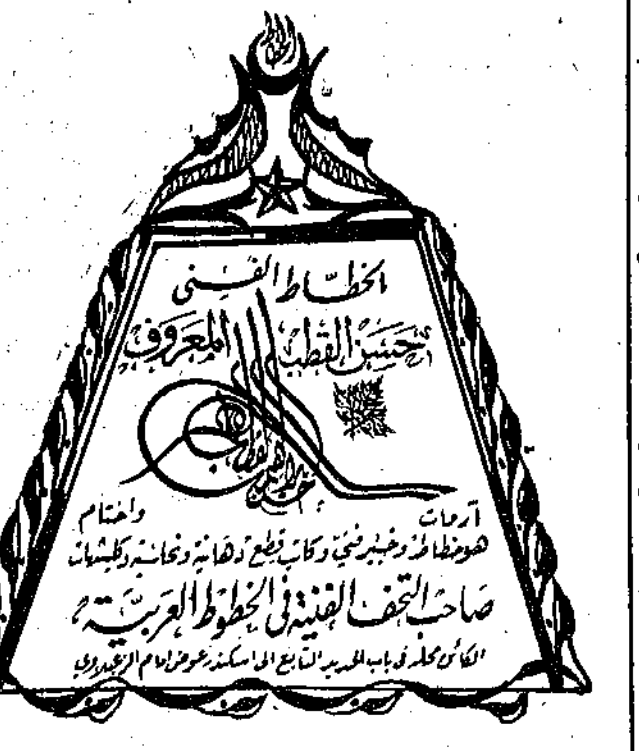 الخطاط
الخطاط الفني
حسن القطب المعروف
آرمات واختام
هو خطاط وخبير فني وكاتب قطع دهانية ونحاسية وكليشهات
صاحب التحف الفنية في الخطوط العربية
الكائن محله في باب الحديد التابع الى اسكندر عوض امام